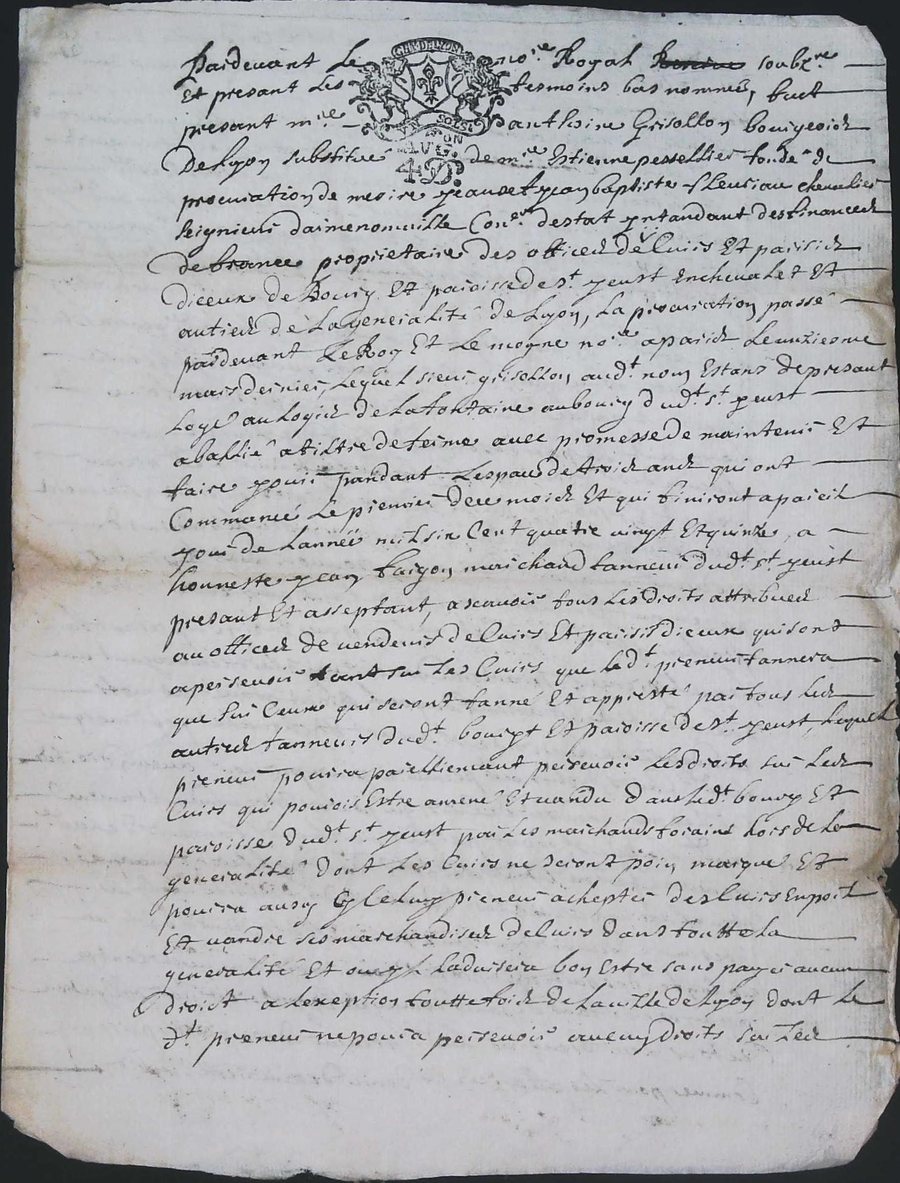 Pardevant le no.re Royal soubz.né
Et presant les tesmoins bas nommés, fuct
presant m.re anthoine Grisollon bourgeoiz
De lyon substitué de m.re Estienne pessellier fondé de
procuration de mesire jean et jean baptiste fleuriau chevallier
seignieur daimenonville Con.er destat yntandant des finances
de france propriétaire des offices de Cuirs Et parisiz
diceux de Bourg Et paroisse de s.t jeust Enchevalet Et
autrez de La generalité de Lyon, La procuration passé
par devant Le Roy Et Le moyne no.re a pariz Le unziesme
mars dernier, Lequel sieur grisollon aud.t nom Estant de presant
Logé au Logiz de La fontaine au bourg dud.t s.t jeust
a ballié a tiltre de ferme avec promesse de maintenir Et
faire jouir pandant Lespace de troiz anz qui ont
Commancé Le premier de ce moiz Et qui finiront a pareil
jour de Lannéé mil six Cent quatre vingt Et quinze, a
honneste jean fargon marchand tanneur dud.t s.t jeust
presant Et asseptant, ascavoir tous Les droits attribuez
au officez de vendeurs de Cuirs Et parisis diceux qui sont
a persevoir tant sur Les Cuirs que led.t preneur tannera
que sur Ceux qui seront tanné Et appresté par tous Lez
autrez tanneurs dud.t bourgt Et paroisse de s.t jeust, Lequel
preneur poura paelliemant persevoir Les droits sur Lez
Cuirs qui pourois Estre amené Et vandu dans led.t bourg Et
paroisse dud.t s.t jeust par Les marchands forains hors de La
generalité dont Les Cuirs ne seront poin marqué Et
poura aussy preneur achepter des Cuirs En poil
Et vandre ses marchandisez de Cuirs dans toutte La
generalité Et ou yl Laduisera bon Estre sans payer aucun
droict a Lexeption touttefoiz de La ville de Lyon dont Le
d.t preneur ne poura persevoir aucuns droits sur Lez
GEN DE LION
4 D.